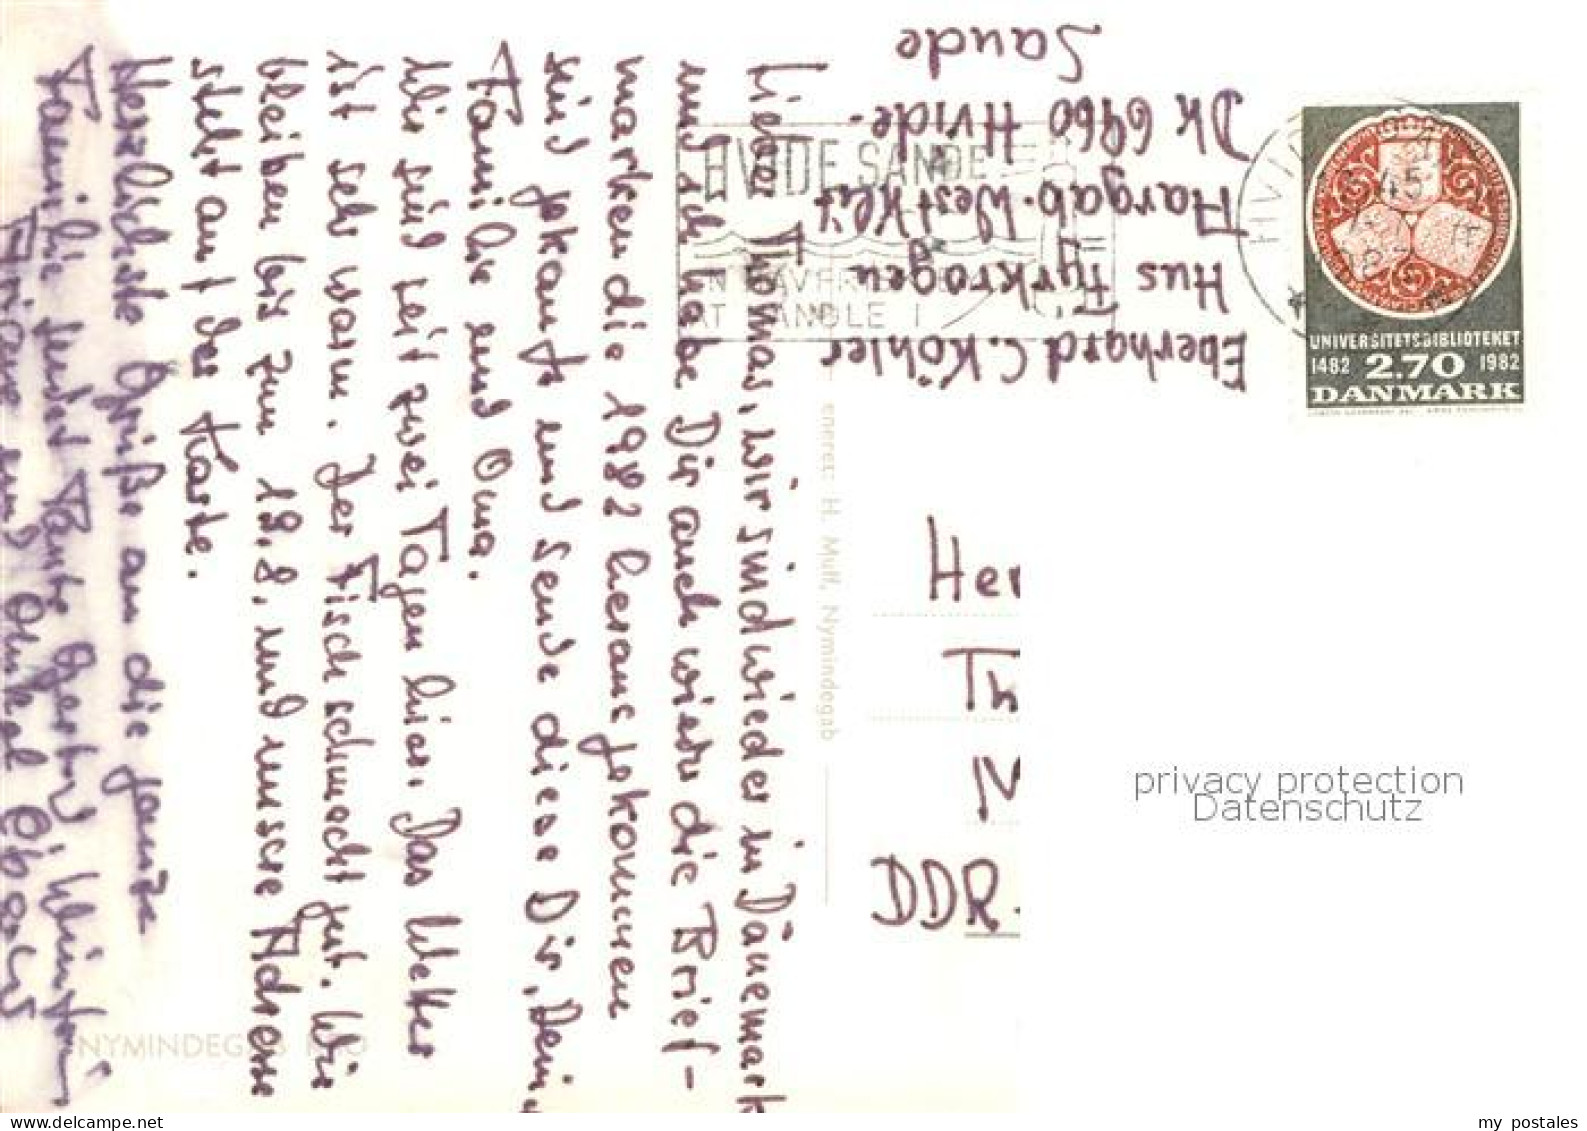 Lieber Thomas, wir sind wieder in Dänemark
und ich habe Dir auch wieder die Brief-
marken die 1982 herausgekommen
sind gekauft und sende diese Dir, Deiner
Familie und Oma.
Wir sind seit zwei Tagen hier. Das Wetter
ist sehr warm. Der Fisch schmeckt gut. Wir
bleiben bis zum 19.8. und unsere Adresse
steht auf der Karte.
Herzlichste Grüße an die ganze
Familie sendet Tante
und Onkel
Eberhard C. Köhler
Hus Fyrkrogen
Aargab-Westklit
Dk 6960 Hvide-
Sande
HVIDE SANDE
UNIVERSITETSBIBLIOTEKET
1482 2.70 1982
DANMARK
eneret: H. Muff, Nymindegab
Her
Th
DDR
NYMINDEGAB KRO
privacy protection
Datenschutz
www.delcampe.net
my postales